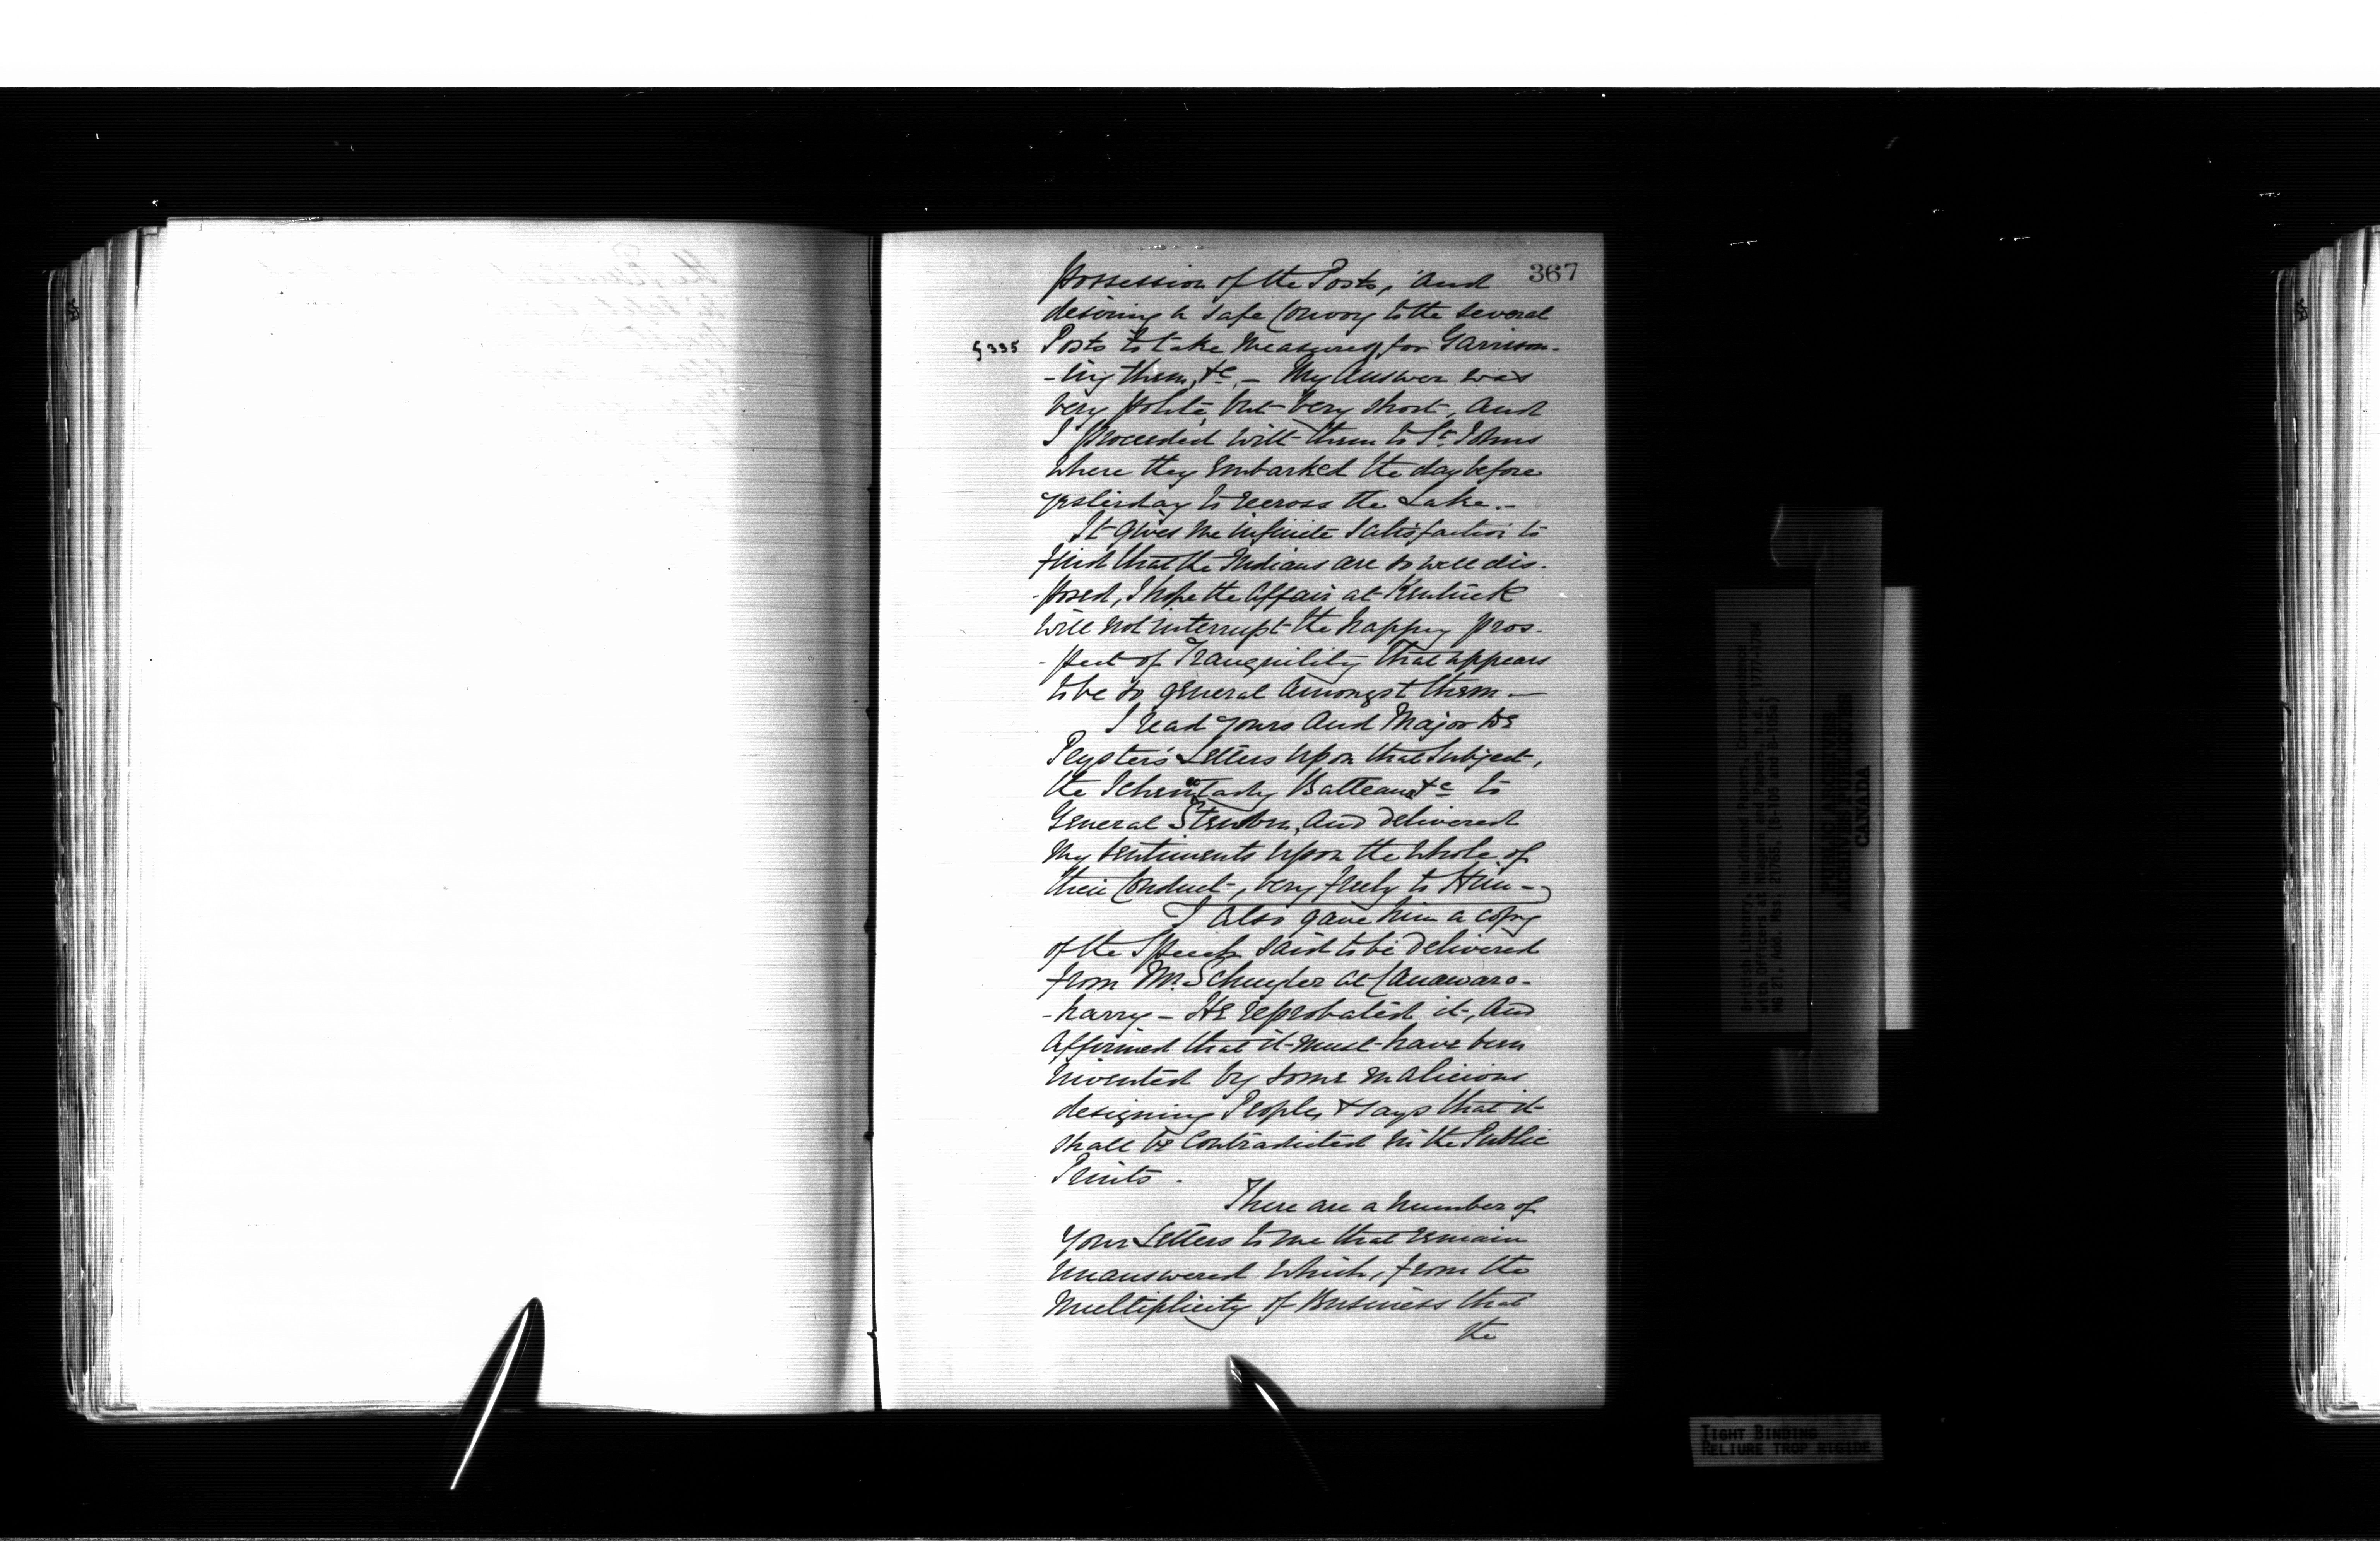 367
possession of the Posts, And
desiring a safe Convoy to the several
Posts to take Measures for Garrison-
-ing them, &c, - My Answer was
very polite, but very short, and
I proceeded with them to St. Johns
where they Embarked the day before
yesterday to recross the Lake. -
It gives me infinite Satisfaction to
find that the Indians are so well dis-
-posed, I hope the Affair at Kentuck
will not interrupt the happy pros-
-pect of Tranquility that appears
to be so general Amongst them -
I read yours And Major De
Peyster's Letters upon that Subject,
the Batteaux &c to
General And delivered
My Sentiments upon the Whole of
their Conduct, very freely to Him -
I also gave him a copy
of the Speech said to be delivered
from Mr. Schuyler at Canawaro-
-harry - He reprobated it, And
Affirmed that it must have been
invented by some malicious
designing People, & says that it
shall be Contradicted in the Public
Prints.
There are a number of
your Letters to me that remain
unanswered which, from the
Multiplicity of Business that
the
British Library, Haldimand Papers, Correspondence
with Officers at Niagara and Papers, n.d., 1777-1784
MG 21, Add. Mss. 21765, (B-105 and B-105a)
PUBLIC ARCHIVES
ARCHIVES PUBLIQUES
CANADA
TIGHT BINDING
RELIURE TROP RIGIDE